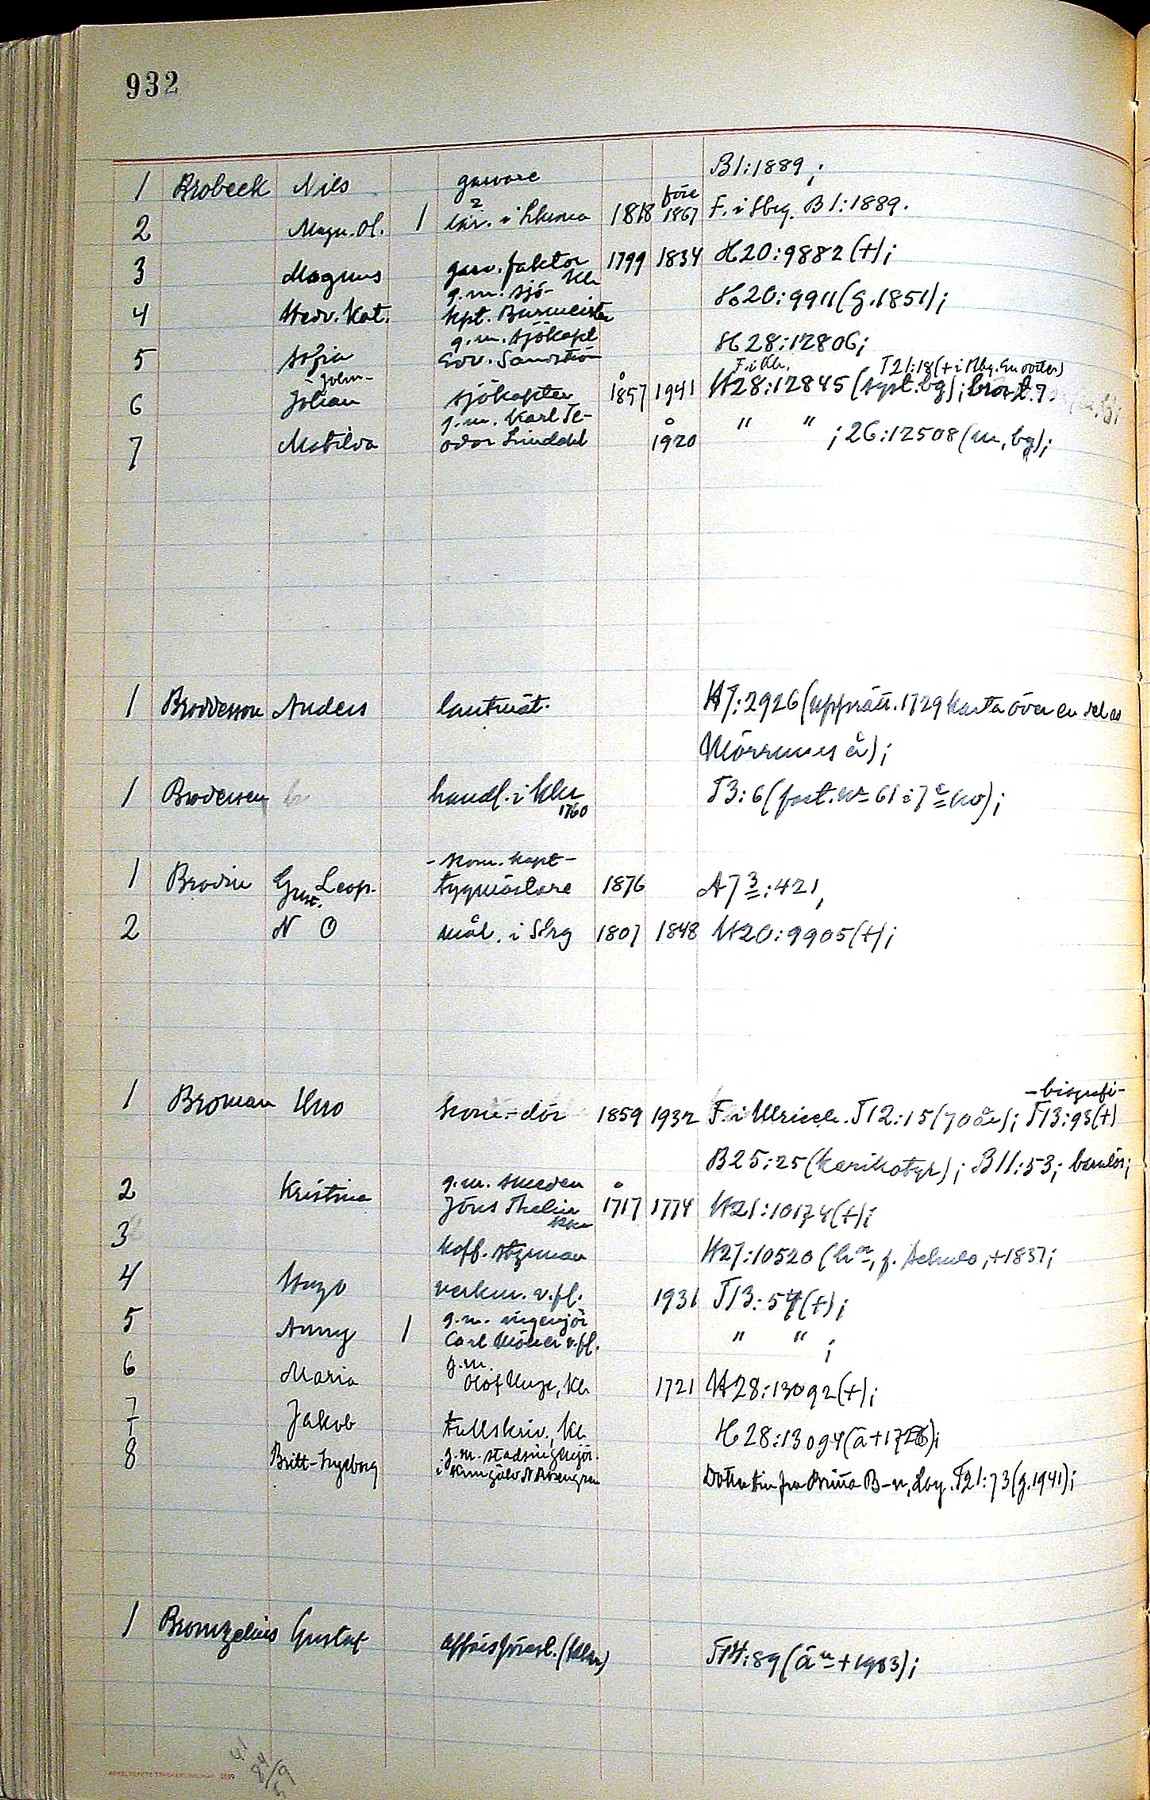 932
1 Brobeck Nils garvare B1:1889;
2 Magn. Ol. 1 lär. i 1818 före 1867 F. i Sbg. B1:1889.
3 Magnus garv. faktor 1799 1834 H20:9882(+);
4 Hedv. Kat. g.m. sjö- Khn
kpt. Burmeister H20:9911(g.1851);
5 Sofia g.m. sjökapt
Edv. Sandström H28:12806;
6 John- Johan sjökapten 1857 1941 F. i Khn. T21:18(+ i Kbg.
H28:12845 (sypt.bg); bror t.7
7 Matilda g.m. Karl Te-
odor Lindahl 1920 " " ; 26:12508(m, bg);
1 Broddesson Anders lantmät. H7:2926(upprätt. 1729 karta över en del av
Mörrums å);
1 Brodersen handl. i Khn
1760 T3:6(fast. No 61 i 7e);
1 Brodin Gust. Leop. -kom. kapt-
tygmästare 1876 A73:421,
2 N O mål. i Sbg 1807 1848 H20:9905(+);
1 Broman Uno kom.-dör 1859 1932 F. i Ulriceh. T12:15(70 år); T13:93(+) -biografi-
B25:25(karikatyr); B11:53; barnlös;
2 Kristina g.m. smeden
Jöns Thelin
1717 1774 H21:10174(+);
3 koff. styrman H27:10520 (hn, f. +1837;
4 Hugo verkm. v. fl. 1931 T13:54(+);
5 Anny 1 g.m. ingenjör
Carl Möller v. fl. " " ;
6 Maria g.m.
Olof Unge, Kh 1721 H28:13092(+);
7 Jakob tullskriv., Kh H28:13094(ä+1726);
8 Britt-Ingeborg g.m. stadsingenjör
i Kungälv N Dottr till fru Brita B-n, Lby. T21:73(g.1941);
1 Bromzelius Gustaf affärsförest. (Khn) T14:89(än+1933);